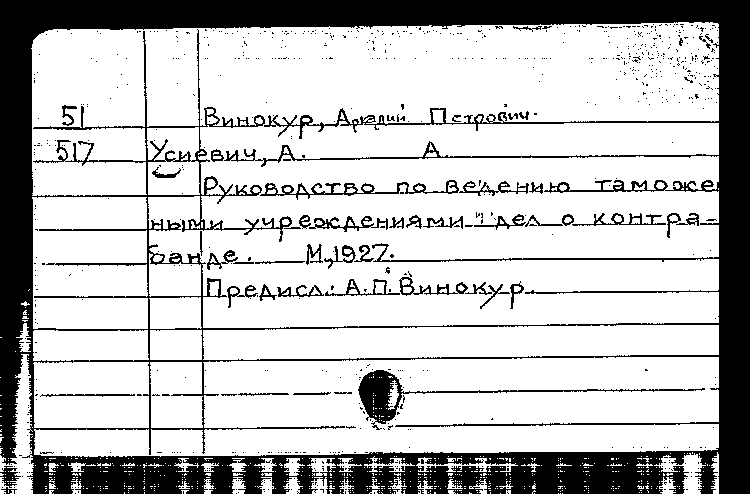 51 Винокур, Аркадий Петрович.
517 Усиевич, А. А
Руководство по ведению таможен
ными учреждениями "дел о контра-
банде. М,1927.
Предисл.: А.П. Винокур.